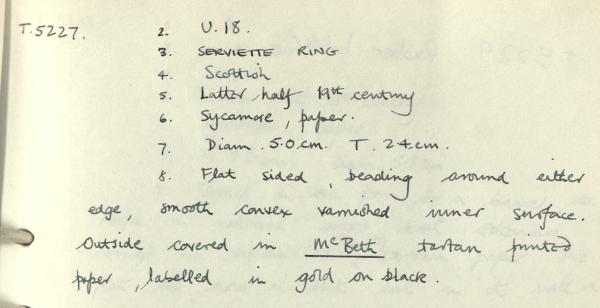 T.5227. 2. U.18.
3. SERVIETTE RING
4. Scottish
5. Latter half 19th century
6. Sycamore, paper.
7. Diam. 5.0cm. T. 2.4cm.
8. Flat sided, beading around either
edge, smooth convex varnished inner surface.
Outside covered in McBeth tartan printed
paper, labelled in gold on black.